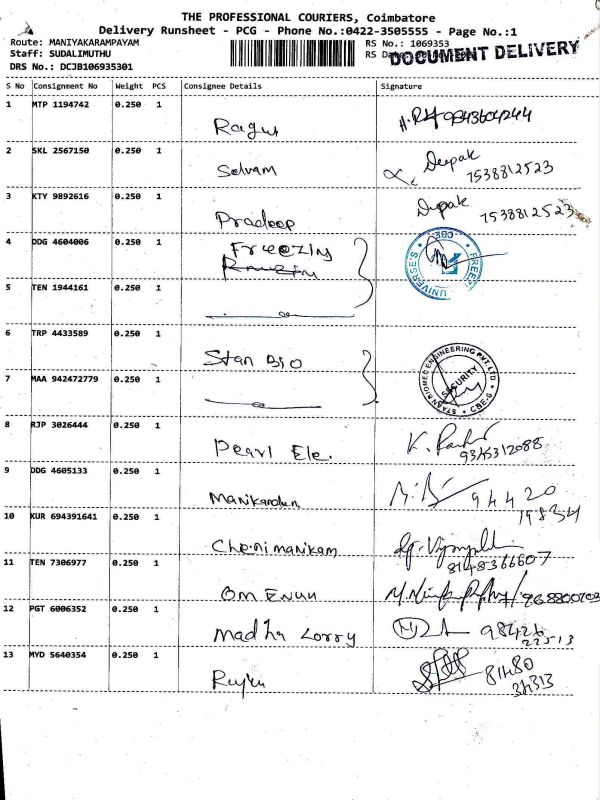 THE PROFESSIONAL COURIERS, Coimbatore
Delivery Runsheet - PCG - Phone No.:0422-3505555 - Page No.:1
Route: MANIYAKARAMPAYAM
RS No.: 1069353
Staff: SUDALIMUTHU
RS Da
DOCUMENT DELIVERY
DRS No.: DCJB106935301
S No Consignment No Weight PCS Consignee Details Signature
1 MTP 1194742 0.250 1
Ragu 9843604244
2 SKL 2567150 0.250 1
Selvam Deepak 7538812523
3 KTY 9892616 0.250 1
Pradeep Deepak 7538812523
4 DDG 4604006 0.250 1
Freezin
CBE FREEZ UNIVERSE'S
5 TEN 1944161 0.250 1
6 TRP 4433589 0.250 1
Stan Bio
STAAN BIOMED ENGINEERING PVT LTD CBE-6 SECURITY
7 MAA 942472779 0.250 1
8 RJP 3026444 0.250 1
Pearl Ele. 9345312088
9 DDG 4605133 0.250 1
Manikandan 94420
19834
10 KUR 694391641 0.250 1
Chenimanikam 8148366607
11 TEN 7306977 0.250 1
OM
12 PGT 6006352 0.250 1
Madha Lorry 98426
22513
13 MYD 5640354 0.250 1
81480
34313